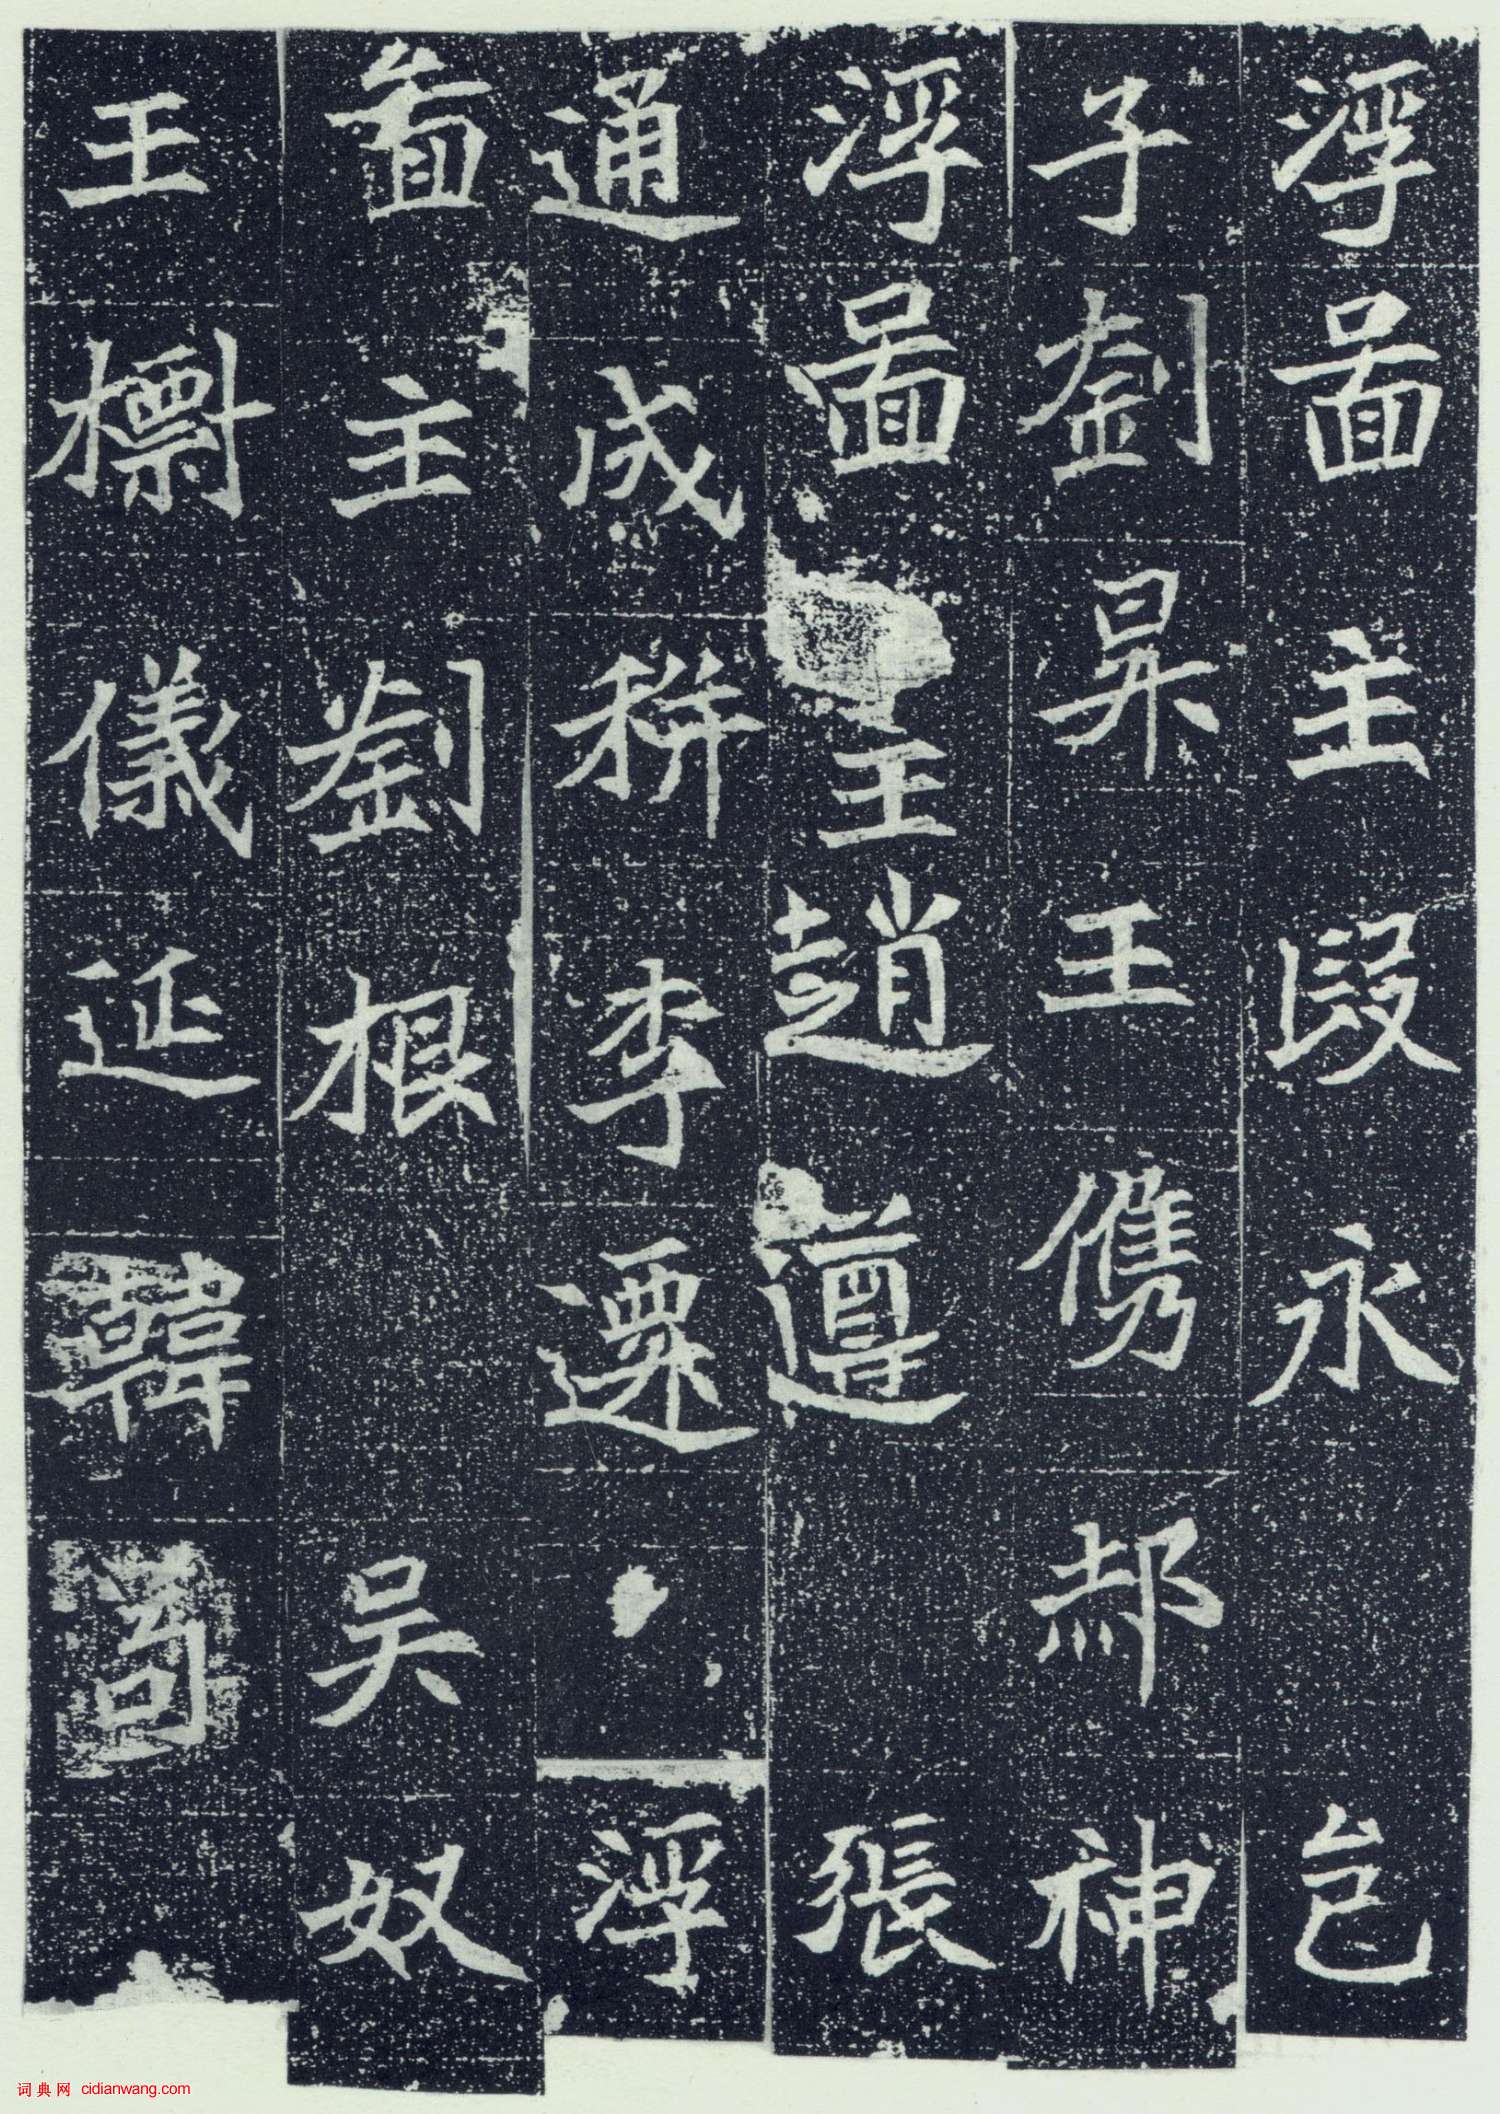 浮啚主段永邑
子劉昇王儁郝神
浮啚主趙遵張
通成李遷浮
啚主劉根吳奴
王儀延韓苟
词典网 cidianwang.com